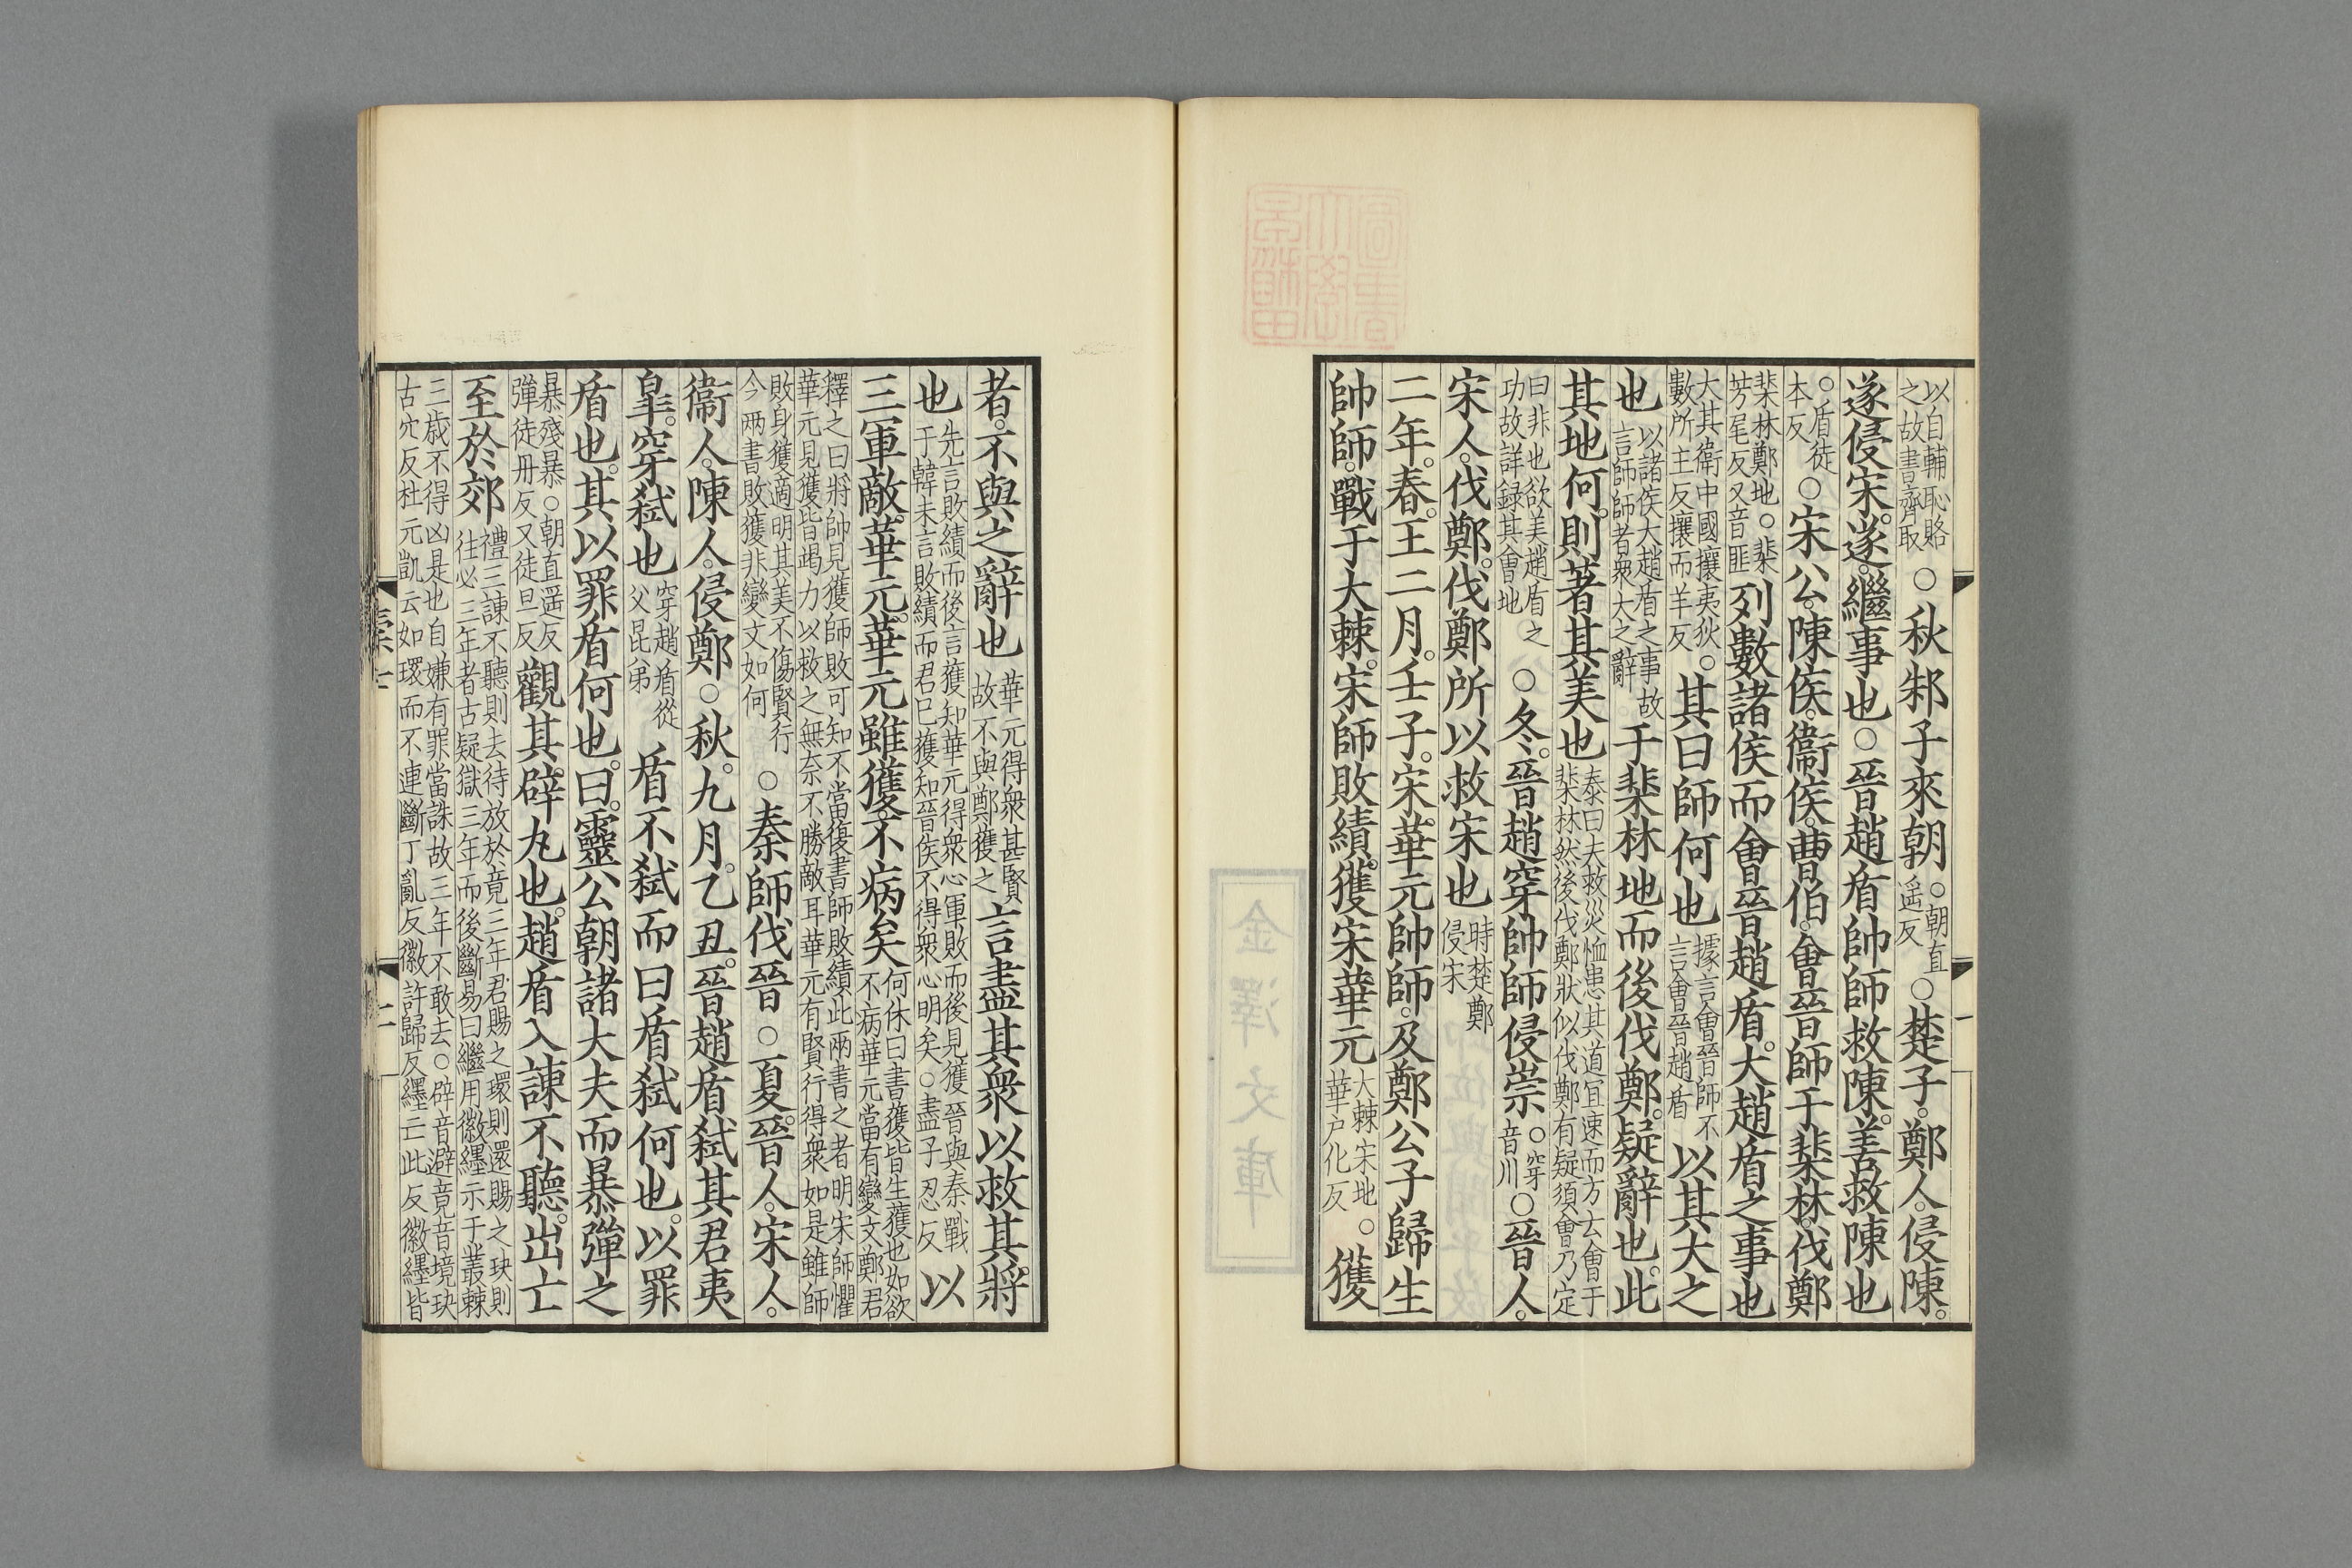 以自輔恥賂之故書齊取○秋邾子來朝○朝直遥反○楚子。鄭人。侵陳。
遂侵宋。遂。繼事也○晉趙盾帥師救陳。善救陳也
○盾徒本反○宋公。陳侯。衞侯。曹伯。會晉師于棐林。伐鄭
棐林鄭地○棐芳尾反又音匪列數諸侯而會晉趙盾。大趙盾之事也
大其衛中國攘夷狄○數所主反攘而羊反其曰師何也據言會晉師不言會晉趙盾以其大之
也以諸侯大趙盾之事故言師師者衆大之辭于棐林地而後伐鄭。疑辭也。此
其地何。則著其美也泰曰夫救災恤患其道宜速而方云會于棐林然後伐鄭狀似伐鄭有疑須會乃定
曰非也欲美趙盾之功故詳録其會地○冬。晉趙穿帥師侵崇○穿音川○晉人。
宋人。伐鄭。伐鄭所以救宋也時楚鄭侵宋
二年。春。王二月。壬子。宋。華元帥師。及鄭公子歸生
帥師。戰于大棘。宋師敗績。獲宋華元大棘宋地○華户化反獲
者。不與之辭也華元得衆甚賢故不與鄭獲之言盡其衆以救其將
也先言敗績而後言獲知華元得衆心軍敗而後見獲晉與秦戰于韓未言敗績而君已獲知晉侯不得衆心明矣○盡子忍反以
三軍敵。華元。華元雖獲。不病矣何休曰書獲皆生獲也如欲不病華元當有變文鄭君
釋之曰將帥見獲師敗可知不當復書師敗績此兩書之者明宋師懼華元見獲皆竭力以救之無奈不勝敵耳華元有賢行得衆如是雖師
敗身獲適明其美不傷賢行今兩書敗獲非變文如何○秦師伐晉○夏。晉人。宋人。
衞人。陳人。侵鄭○秋。九月。乙丑。晉趙盾弑其君夷
皐。穿弑也穿趙盾從父昆弟盾不弑而曰盾弑何也。以罪
盾也。其以罪盾何也。曰。靈公朝諸大夫而暴彈之
暴殘暴○朝直遥反彈徒丹反又徒旦反觀其辟丸也。趙盾入諫不聽。出亡
至於郊禮三諫不聽則去待放於竟三年君賜之環則還賜之玦則往必三年者古疑獄三年而後斷易曰繼用徽纆示于叢棘
三歲不得凶是也自嫌有罪當誅故三年不敢去○辟音避竟音境玦古穴反杜元凱云如環而不連斷丁亂反徽許歸反纆亡此反徽纆皆
二
金澤文庫